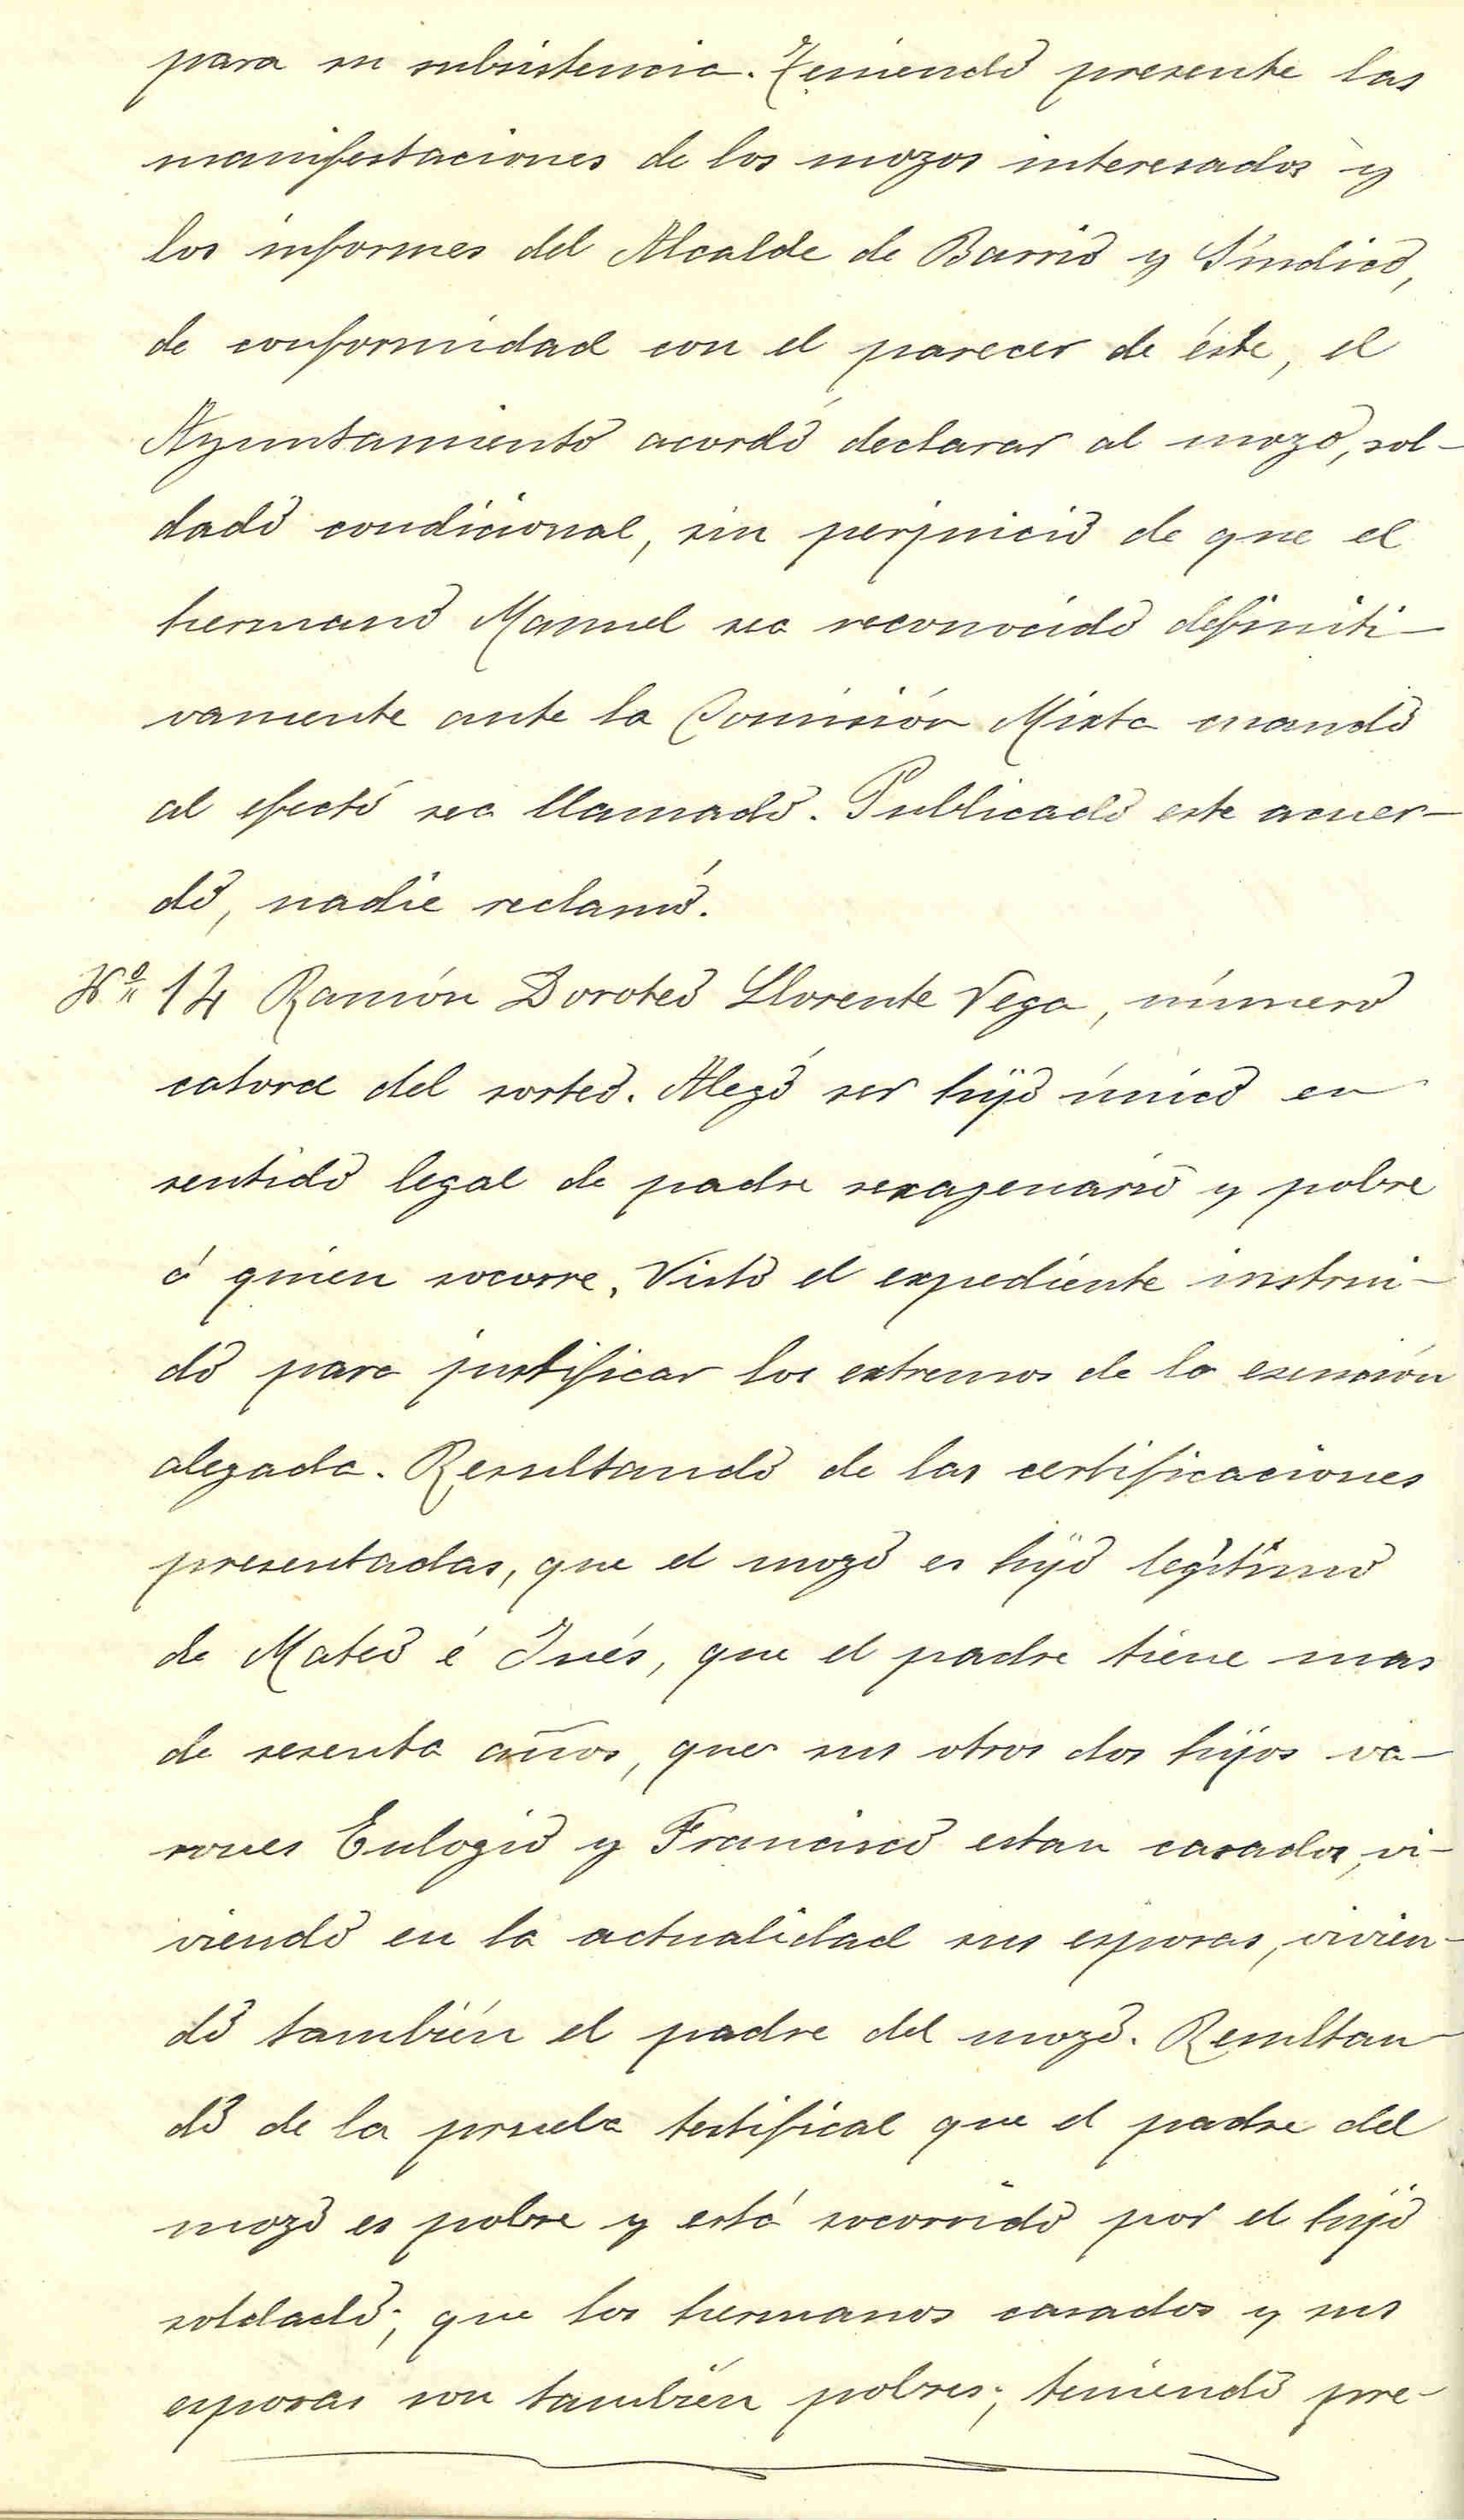 para su subsistencia. Teniendo presente las
manifestaciones de los mozos interesados y
los informes del Alcalde de Barrio y Síndico,
de conformidad con el parecer de éste, el
Ayuntamiento acordó declarar al mozo, sol-
dado condicional, sin perjuicio de que el
hermano Manuel sea reconocido definiti-
vamente ante la Comisión Mixta cuando
al efecto sea llamado. Publicado este acuer-
do, nadie reclamó.
Nº 14 Ramón Doroteo Llorente Vega, número
catorce del sorteo. Alegó ser hijo único en
sentido legal de padre sexagenario y pobre
á quien socorre. Visto el expediente instrui-
do para justificar los extremos de la exención
alegada. Resultando de las certificaciones
presentadas, que el mozo es hijo legítimo
de Mateo é Inés, que el padre tiene mas
de sesenta años, que sus otros dos hijos va-
rones Eulogio y Francisco estan casados, vi-
viendo en la actualidad sus esposas, vivien-
do también el padre del mozo. Resultan-
do de la prueba testifical que el padre del
mozo es pobre y está socorrido por el hijo
soldado; que los hermanos casados y sus
esposas son también pobres; teniendo pre-